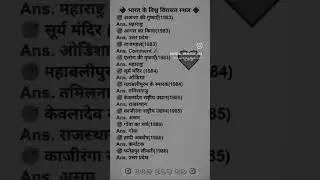 भारत के विश्व विरासत स्थल
अजन्ता की गुफाएँ(1983)
Ans. महाराष्ट्र
आगरा का किला(1983)
Ans. उत्तर प्रदेश
ताजमहल(1983)
Ans. Comment
एलोरा की गुफाएँ(1983)
Ans. महाराष्ट्र
सूर्य मंदिर (1984)
Ans. ओडिशा
महाबलीपुरम के स्मारक(1984)
Ans. तमिलनाडु
केवलादेव राष्ट्रीय उद्यान(1985)
Ans. राजस्थान
काजीरंगा राष्ट्रीय उद्यान(1985)
Ans. असम
गोवा का चर्च(1986)
Ans. गोवा
हम्पी अवशेष(1986)
Ans. कर्नाटक
फतेहपुर सीकरी(1986)
Ans. उत्तर प्रदेश
महाराष्ट्र
सूर्य मंदिर
Ans. ओडिशा
महाबलीपुर
Ans. तमिलना
केवलादेव रा
Ans. राजस्थान
काजीरंगा रा